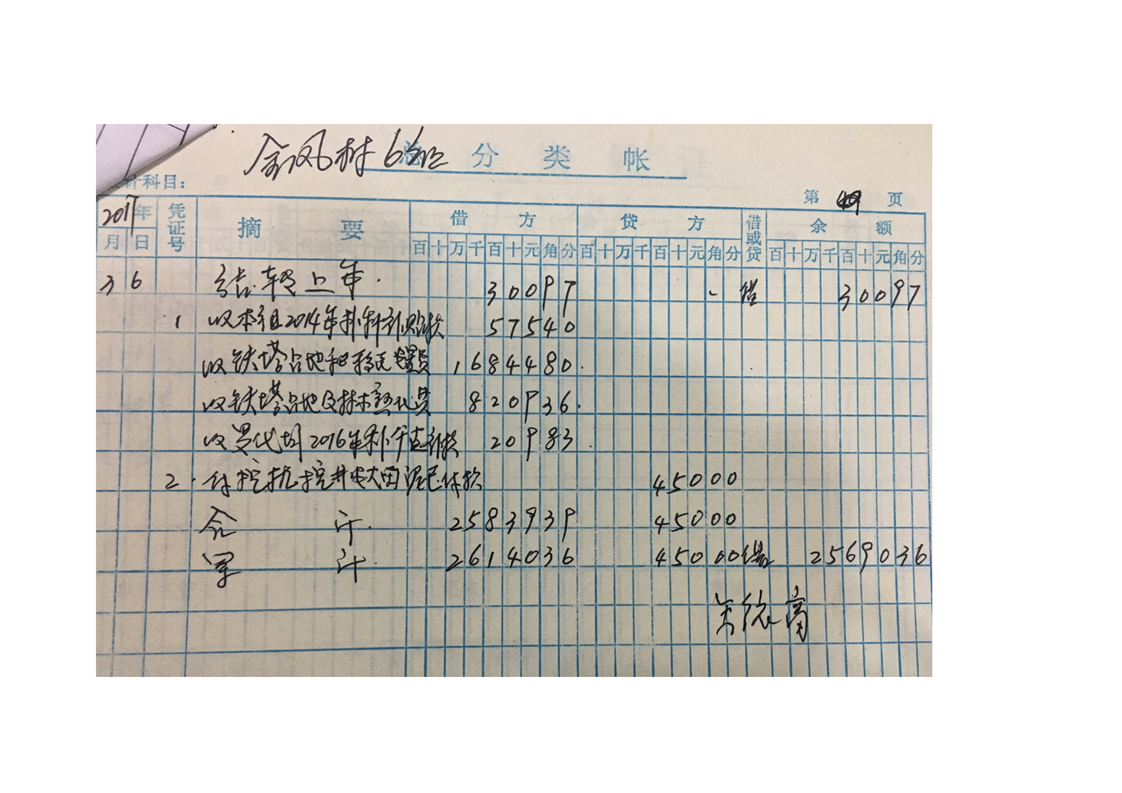 金凤村6组 分类帐
计科目：
第 49 页
2017年 凭证号 摘要 借方 贷方 借或贷 余额
月 日 百十万千百十元角分 百十万千百十元角分 百十万千百十元角分
3 6 结转上年. 30097 - 借 30097
1 收本组2014年 补贴款 57540
收铁塔占地和 费 1684480
收铁塔占地及林木 费 820936
收 2016年 款 20983
2. 付挖机挖 大田 付款 45000
合计. 2583939 45000
累计. 2614036 45000 借 2569036